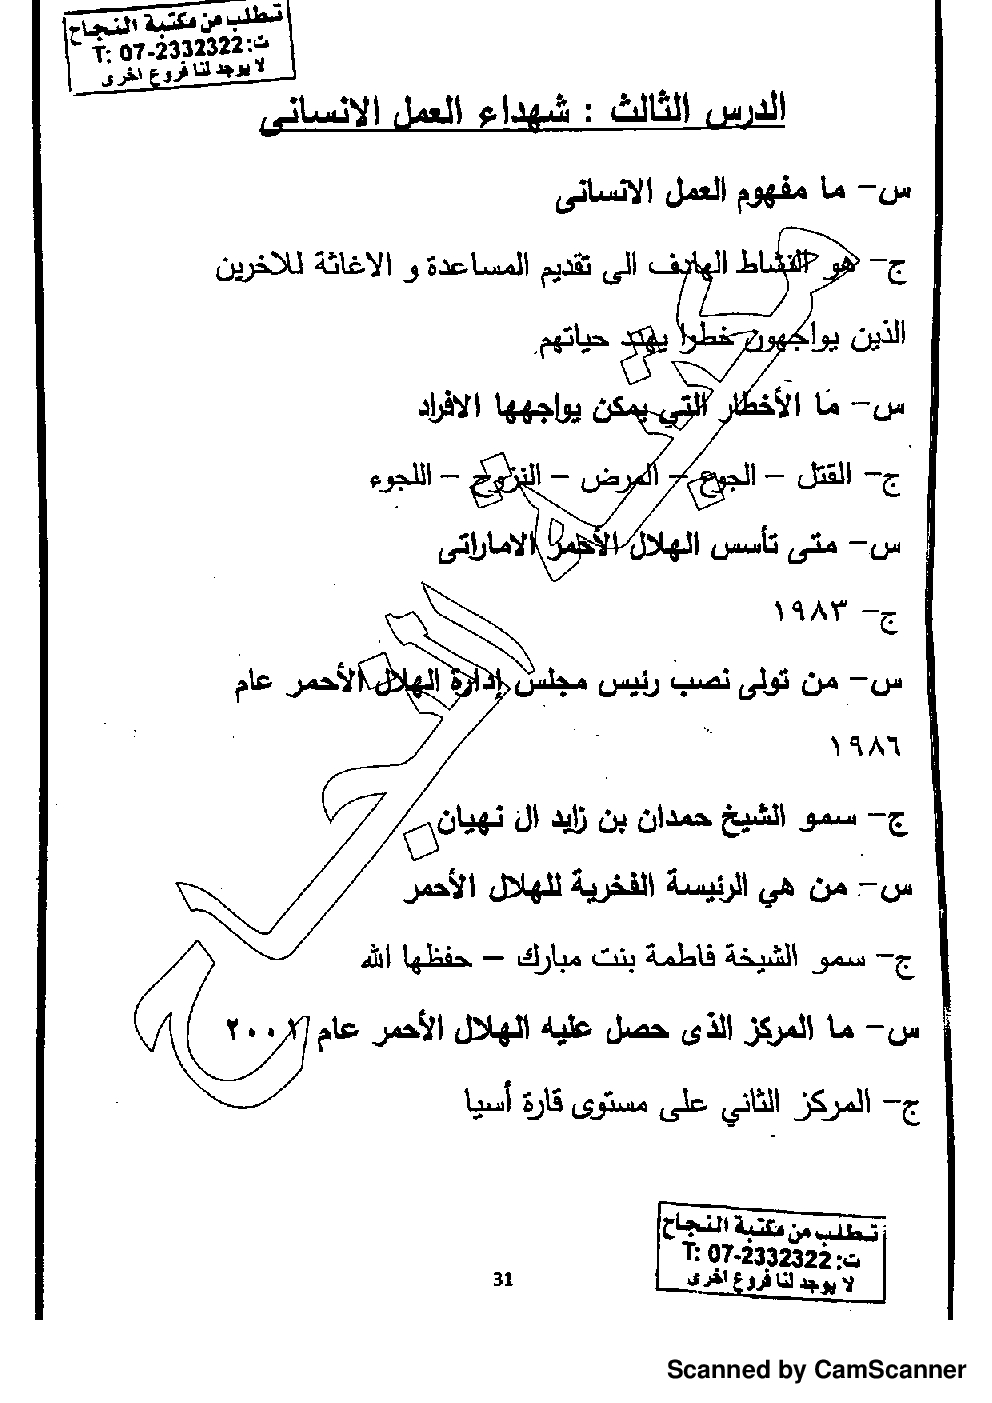 تطلب من مكتبة النجاح
ت: T: 07-2332322
لا يوجد لنا فروع اخرى
الدرس الثالث : شهداء العمل الانسانى
س– ما مفهوم العمل الانسانى
ج– هو النشاط الهادف الى تقديم المساعدة و الاغاثة للاخرين
الذين يواجهون خطرا يهدد حياتهم
س– ما الأخطار التي يمكن يواجهها الافراد
ج– القتل – الجوع – المرض – النزوح – اللجوء
س– متى تأسس الهلال الأحمر الاماراتى
ج– ١٩٨٣
س– من تولى نصب رئيس مجلس إدارة الهلال الأحمر عام
١٩٨٦
ج– سمو الشيخ حمدان بن زايد ال نهيان
س– من هي الرئيسة الفخرية للهلال الأحمر
ج– سمو الشيخة فاطمة بنت مبارك – حفظها الله
س– ما المركز الذى حصل عليه الهلال الأحمر عام ٢٠٠١
ج– المركز الثاني على مستوى قارة أسيا
تطلب من مكتبة النجاح
ت: T: 07-2332322
لا يوجد لنا فروع اخرى
31
Scanned by CamScanner